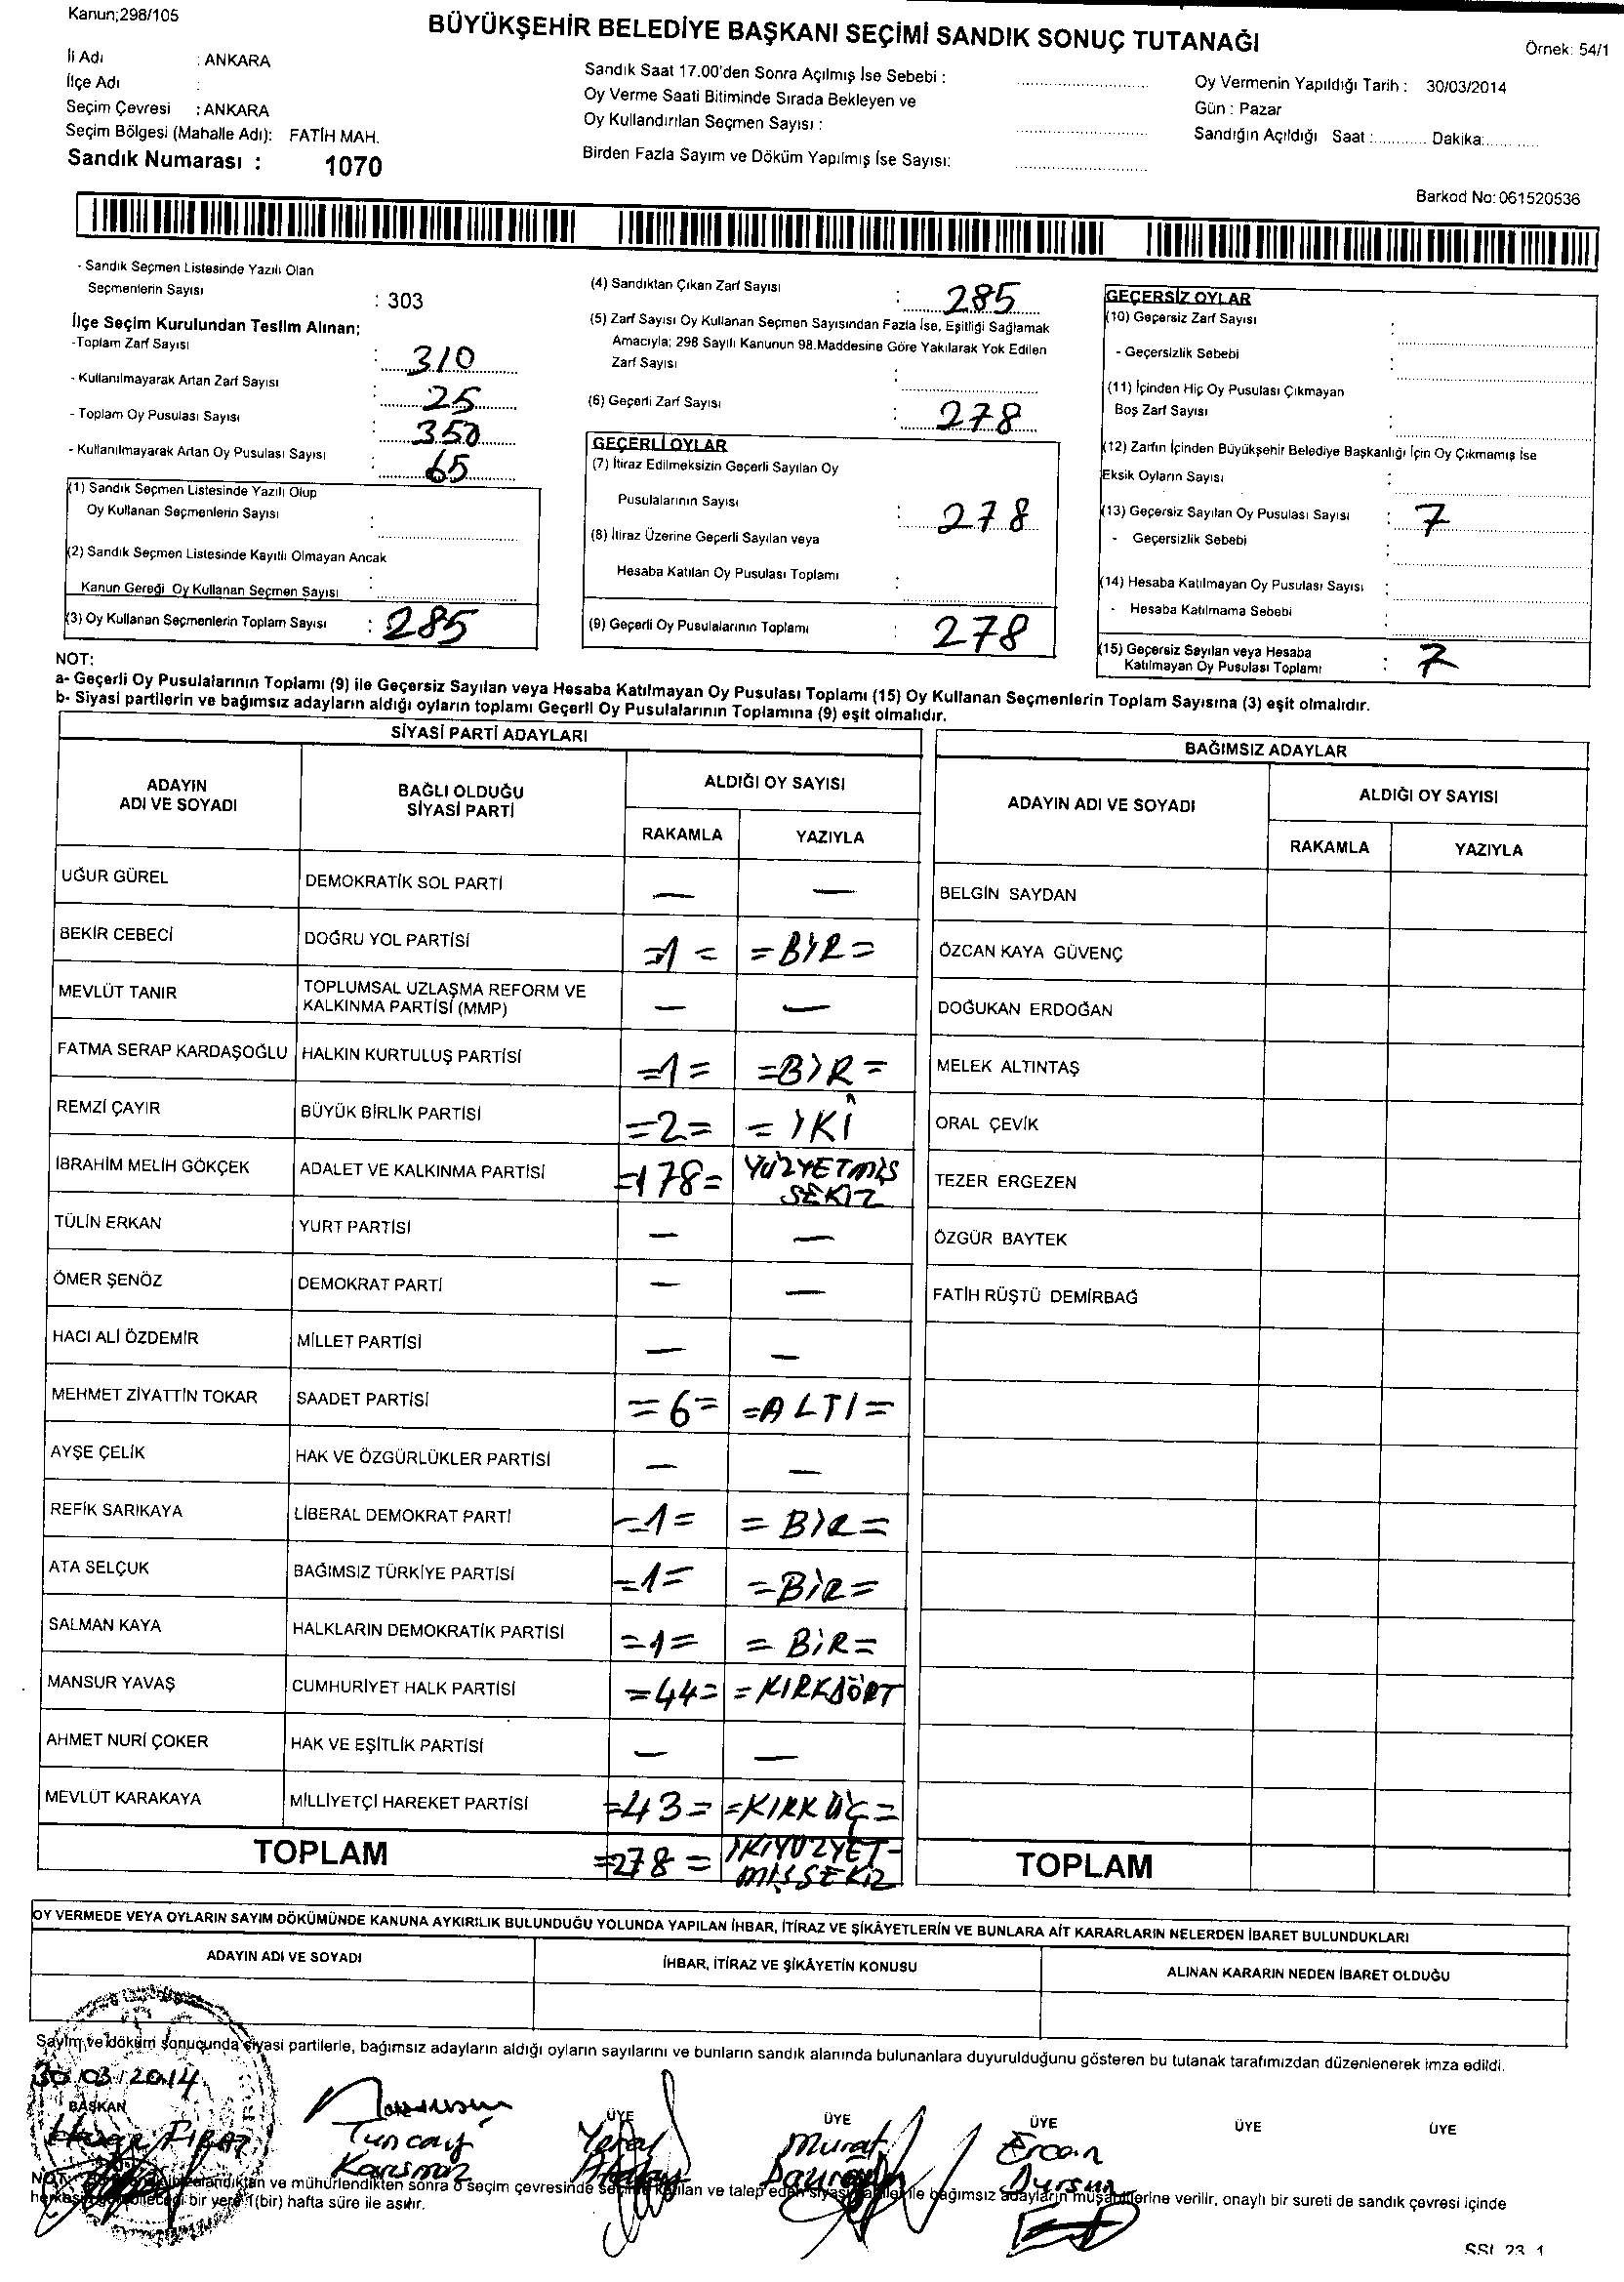 Kanun;298/105
BÜYÜKŞEHİR BELEDİYE BAŞKANI SEÇİMİ SANDIK SONUÇ TUTANAĞI
Örnek: 54/1
İl Adı : ANKARA
İlçe Adı :
Seçim Çevresi : ANKARA
Seçim Bölgesi (Mahalle Adı): FATİH MAH.
Sandık Numarası : 1070
Sandık Saat 17.00'den Sonra Açılmış İse Sebebi :
Oy Verme Saati Bitiminde Sırada Bekleyen ve
Oy Kullandırılan Seçmen Sayısı :
Birden Fazla Sayım ve Döküm Yapılmış İse Sayısı:
Oy Vermenin Yapıldığı Tarih : 30/03/2014
Gün : Pazar
Sandığın Açıldığı Saat :............ Dakika:............
Barkod No: 061520536
- Sandık Seçmen Listesinde Yazılı Olan
Seçmenlerin Sayısı : 303
İlçe Seçim Kurulundan Teslim Alınan;
-Toplam Zarf Sayısı : 310
- Kullanılmayarak Artan Zarf Sayısı : 25
- Toplam Oy Pusulası Sayısı : 350
- Kullanılmayarak Artan Oy Pusulası Sayısı : 65
(1) Sandık Seçmen Listesinde Yazılı Olup
Oy Kullanan Seçmenlerin Sayısı :
(2) Sandık Seçmen Listesinde Kayıtlı Olmayan Ancak
Kanun Gereği Oy Kullanan Seçmen Sayısı :
(3) Oy Kullanan Seçmenlerin Toplam Sayısı : 285
(4) Sandıktan Çıkan Zarf Sayısı : 285
(5) Zarf Sayısı Oy Kullanan Seçmen Sayısından Fazla İse, Eşitliği Sağlamak
Amacıyla; 298 Sayılı Kanunun 98.Maddesine Göre Yakılarak Yok Edilen
Zarf Sayısı :
(6) Geçerli Zarf Sayısı : 278
GEÇERLİ OYLAR
(7) İtiraz Edilmeksizin Geçerli Sayılan Oy
Pusulalarının Sayısı : 278
(8) İtiraz Üzerine Geçerli Sayılan veya
Hesaba Katılan Oy Pusulası Toplamı :
(9) Geçerli Oy Pusulalarının Toplamı : 278
GEÇERSİZ OYLAR
(10) Geçersiz Zarf Sayısı :
- Geçersizlik Sebebi :
(11) İçinden Hiç Oy Pusulası Çıkmayan
Boş Zarf Sayısı :
(12) Zarfın İçinden Büyükşehir Belediye Başkanlığı İçin Oy Çıkmamış İse
Eksik Oyların Sayısı :
(13) Geçersiz Sayılan Oy Pusulası Sayısı : 7
- Geçersizlik Sebebi :
(14) Hesaba Katılmayan Oy Pusulası Sayısı :
- Hesaba Katılmama Sebebi :
(15) Geçersiz Sayılan veya Hesaba
Katılmayan Oy Pusulası Toplamı : 7
NOT:
a- Geçerli Oy Pusulalarının Toplamı (9) ile Geçersiz Sayılan veya Hesaba Katılmayan Oy Pusulası Toplamı (15) Oy Kullanan Seçmenlerin Toplam Sayısına (3) eşit olmalıdır.
b- Siyasi partilerin ve bağımsız adayların aldığı oyların toplamı Geçerli Oy Pusulalarının Toplamına (9) eşit olmalıdır.
SİYASİ PARTİ ADAYLARI
ADAYIN ADI VE SOYADI
BAĞLI OLDUĞU SİYASİ PARTİ
ALDIĞI OY SAYISI
RAKAMLA YAZIYLA
UĞUR GÜREL DEMOKRATİK SOL PARTİ — —
BEKİR CEBECİ DOĞRU YOL PARTİSİ =1= =BİR=
MEVLÜT TANIR TOPLUMSAL UZLAŞMA REFORM VE KALKINMA PARTİSİ (MMP) — —
FATMA SERAP KARDAŞOĞLU HALKIN KURTULUŞ PARTİSİ =1= =BİR=
REMZİ ÇAYIR BÜYÜK BİRLİK PARTİSİ =2= =İKİ
İBRAHİM MELİH GÖKÇEK ADALET VE KALKINMA PARTİSİ =178= YÜZYETMİŞ SEKİZ
TÜLİN ERKAN YURT PARTİSİ — —
ÖMER ŞENÖZ DEMOKRAT PARTİ — —
HACI ALİ ÖZDEMİR MİLLET PARTİSİ — —
MEHMET ZİYATTİN TOKAR SAADET PARTİSİ =6= =ALTI=
AYŞE ÇELİK HAK VE ÖZGÜRLÜKLER PARTİSİ — —
REFİK SARIKAYA LİBERAL DEMOKRAT PARTİ =1= =BİR=
ATA SELÇUK BAĞIMSIZ TÜRKİYE PARTİSİ =1= =BİR=
SALMAN KAYA HALKLARIN DEMOKRATİK PARTİSİ =1= =BİR=
MANSUR YAVAŞ CUMHURİYET HALK PARTİSİ =44= =KIRKDÖRT
AHMET NURİ ÇOKER HAK VE EŞİTLİK PARTİSİ — —
MEVLÜT KARAKAYA MİLLİYETÇİ HAREKET PARTİSİ =43= =KIRKÜÇ=
TOPLAM =278= İKİYÜZYET-
MİŞSEKİZ
BAĞIMSIZ ADAYLAR
ADAYIN ADI VE SOYADI
ALDIĞI OY SAYISI
RAKAMLA YAZIYLA
BELGİN SAYDAN
ÖZCAN KAYA GÜVENÇ
DOĞUKAN ERDOĞAN
MELEK ALTINTAŞ
ORAL ÇEVİK
TEZER ERGEZEN
ÖZGÜR BAYTEK
FATİH RÜŞTÜ DEMİRBAĞ
TOPLAM
OY VERMEDE VEYA OYLARIN SAYIM DÖKÜMÜNDE KANUNA AYKIRILIK BULUNDUĞU YOLUNDA YAPILAN İHBAR, İTİRAZ VE ŞİKÂYETLERİN VE BUNLARA AİT KARARLARIN NELERDEN İBARET BULUNDUKLARI
ADAYIN ADI VE SOYADI
İHBAR, İTİRAZ VE ŞİKÂYETİN KONUSU
ALINAN KARARIN NEDEN İBARET OLDUĞU
Sayım ve döküm sonucunda siyasi partilerle, bağımsız adayların aldığı oyların sayılarını ve bunların sandık alanında bulunanlara duyurulduğunu gösteren bu tutanak tarafımızdan düzenlenerek imza edildi.
30/03/2014
BAŞKAN ÜYE ÜYE ÜYE ÜYE ÜYE
Tuncay
Murat
Ercan
Dursun
NOT: ve mühürlendikten sonra o seçim çevresinde ve talep eden ile bağımsız adayların müşahitlerine verilir, onaylı bir sureti de sandık çevresi içinde
bir yere 1(bir) hafta süre ile asılır.